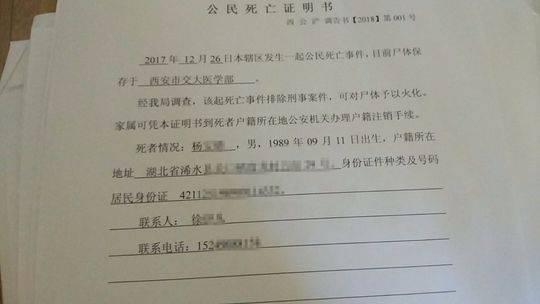 公民死亡证明书
西公浐 调告书【2018】第 001 号
2017 年 12 月 26 日本辖区发生一起公民死亡事件,目前尸体保
存于 西安市交大医学部 。
经我局调查,该起死亡事件排除刑事案件,可对尸体予以火化。
家属可凭本证明书到死者户籍所在地公安机关办理户籍注销手续。
死者情况:杨 ,男,1989 年 09 月 11 日出生,户籍所在
地址 湖北省浠水 身份证件种类及号码
居民身份证 4211
联系人:徐
联系电话:152